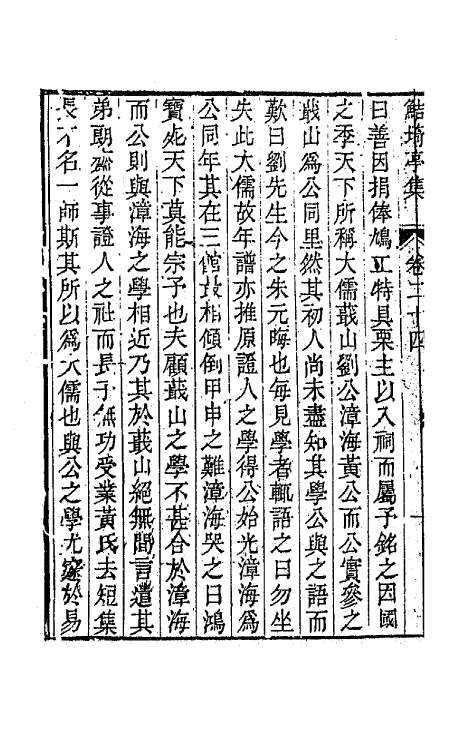 鮚埼亭集　卷二十四
曰善因捐俸鳩工特具栗主以入祠而屬予銘之因國
之季天下所稱大儒蕺山劉公漳海黃公而公實參之
蕺山爲公同里然其初人尚未盡知其學公與之語而
歎曰劉先生今之朱元晦也每見學者輒語之曰勿坐
失此大儒故年譜亦推原證人之學得公始光漳海爲
公同年其在三館最相傾倒甲申之難漳海哭之曰鴻
寶死天下莫能宗予也夫顧蕺山之學不甚合於漳海
而公則與漳海之學相近乃其於蕺山絕無間言遣其
弟朝齋從事證人之社而長子無功受業黃氏去短集
長不名一師斯其所以爲大儒也與公之學尤邃於易